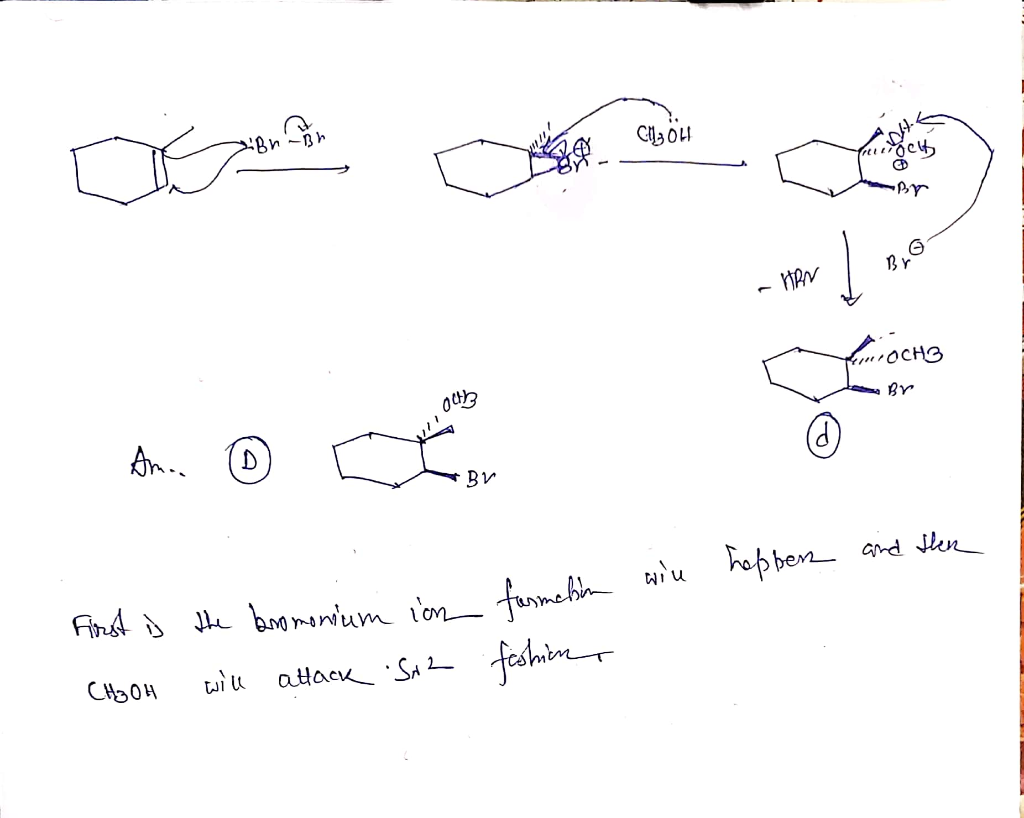 :Br – Br
Br ⊕
CH3ÖH
H
OCH3
⊕
Br
- HBr
Br⊖
OCH3
Br
d
OCH3
Br
An.. D
First is the bromonium ion formation will happen and then
CH3OH will attack SN2 fashion